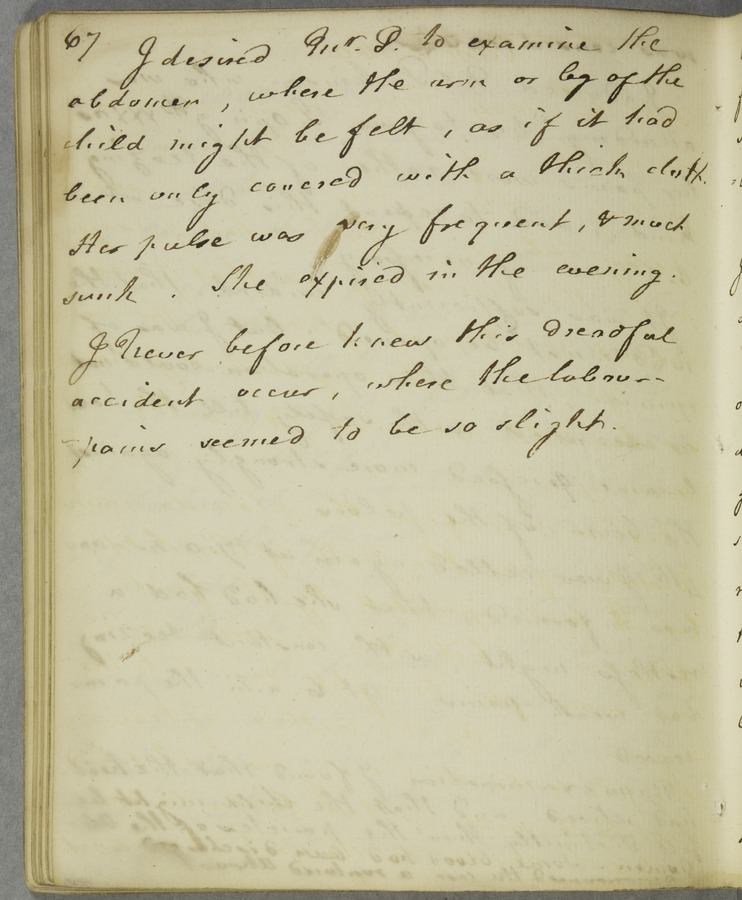 67 I desired Mr. P. to examine the
abdomen, where the arm or leg of the
child might be felt, as if it had
been only covered with a thick cloth.
Her pulse was very frequent, & much
sunk. She expired in the evening.
I never before knew this dreadful
accident occur, where the labour-
-pains seemed to be so slight.